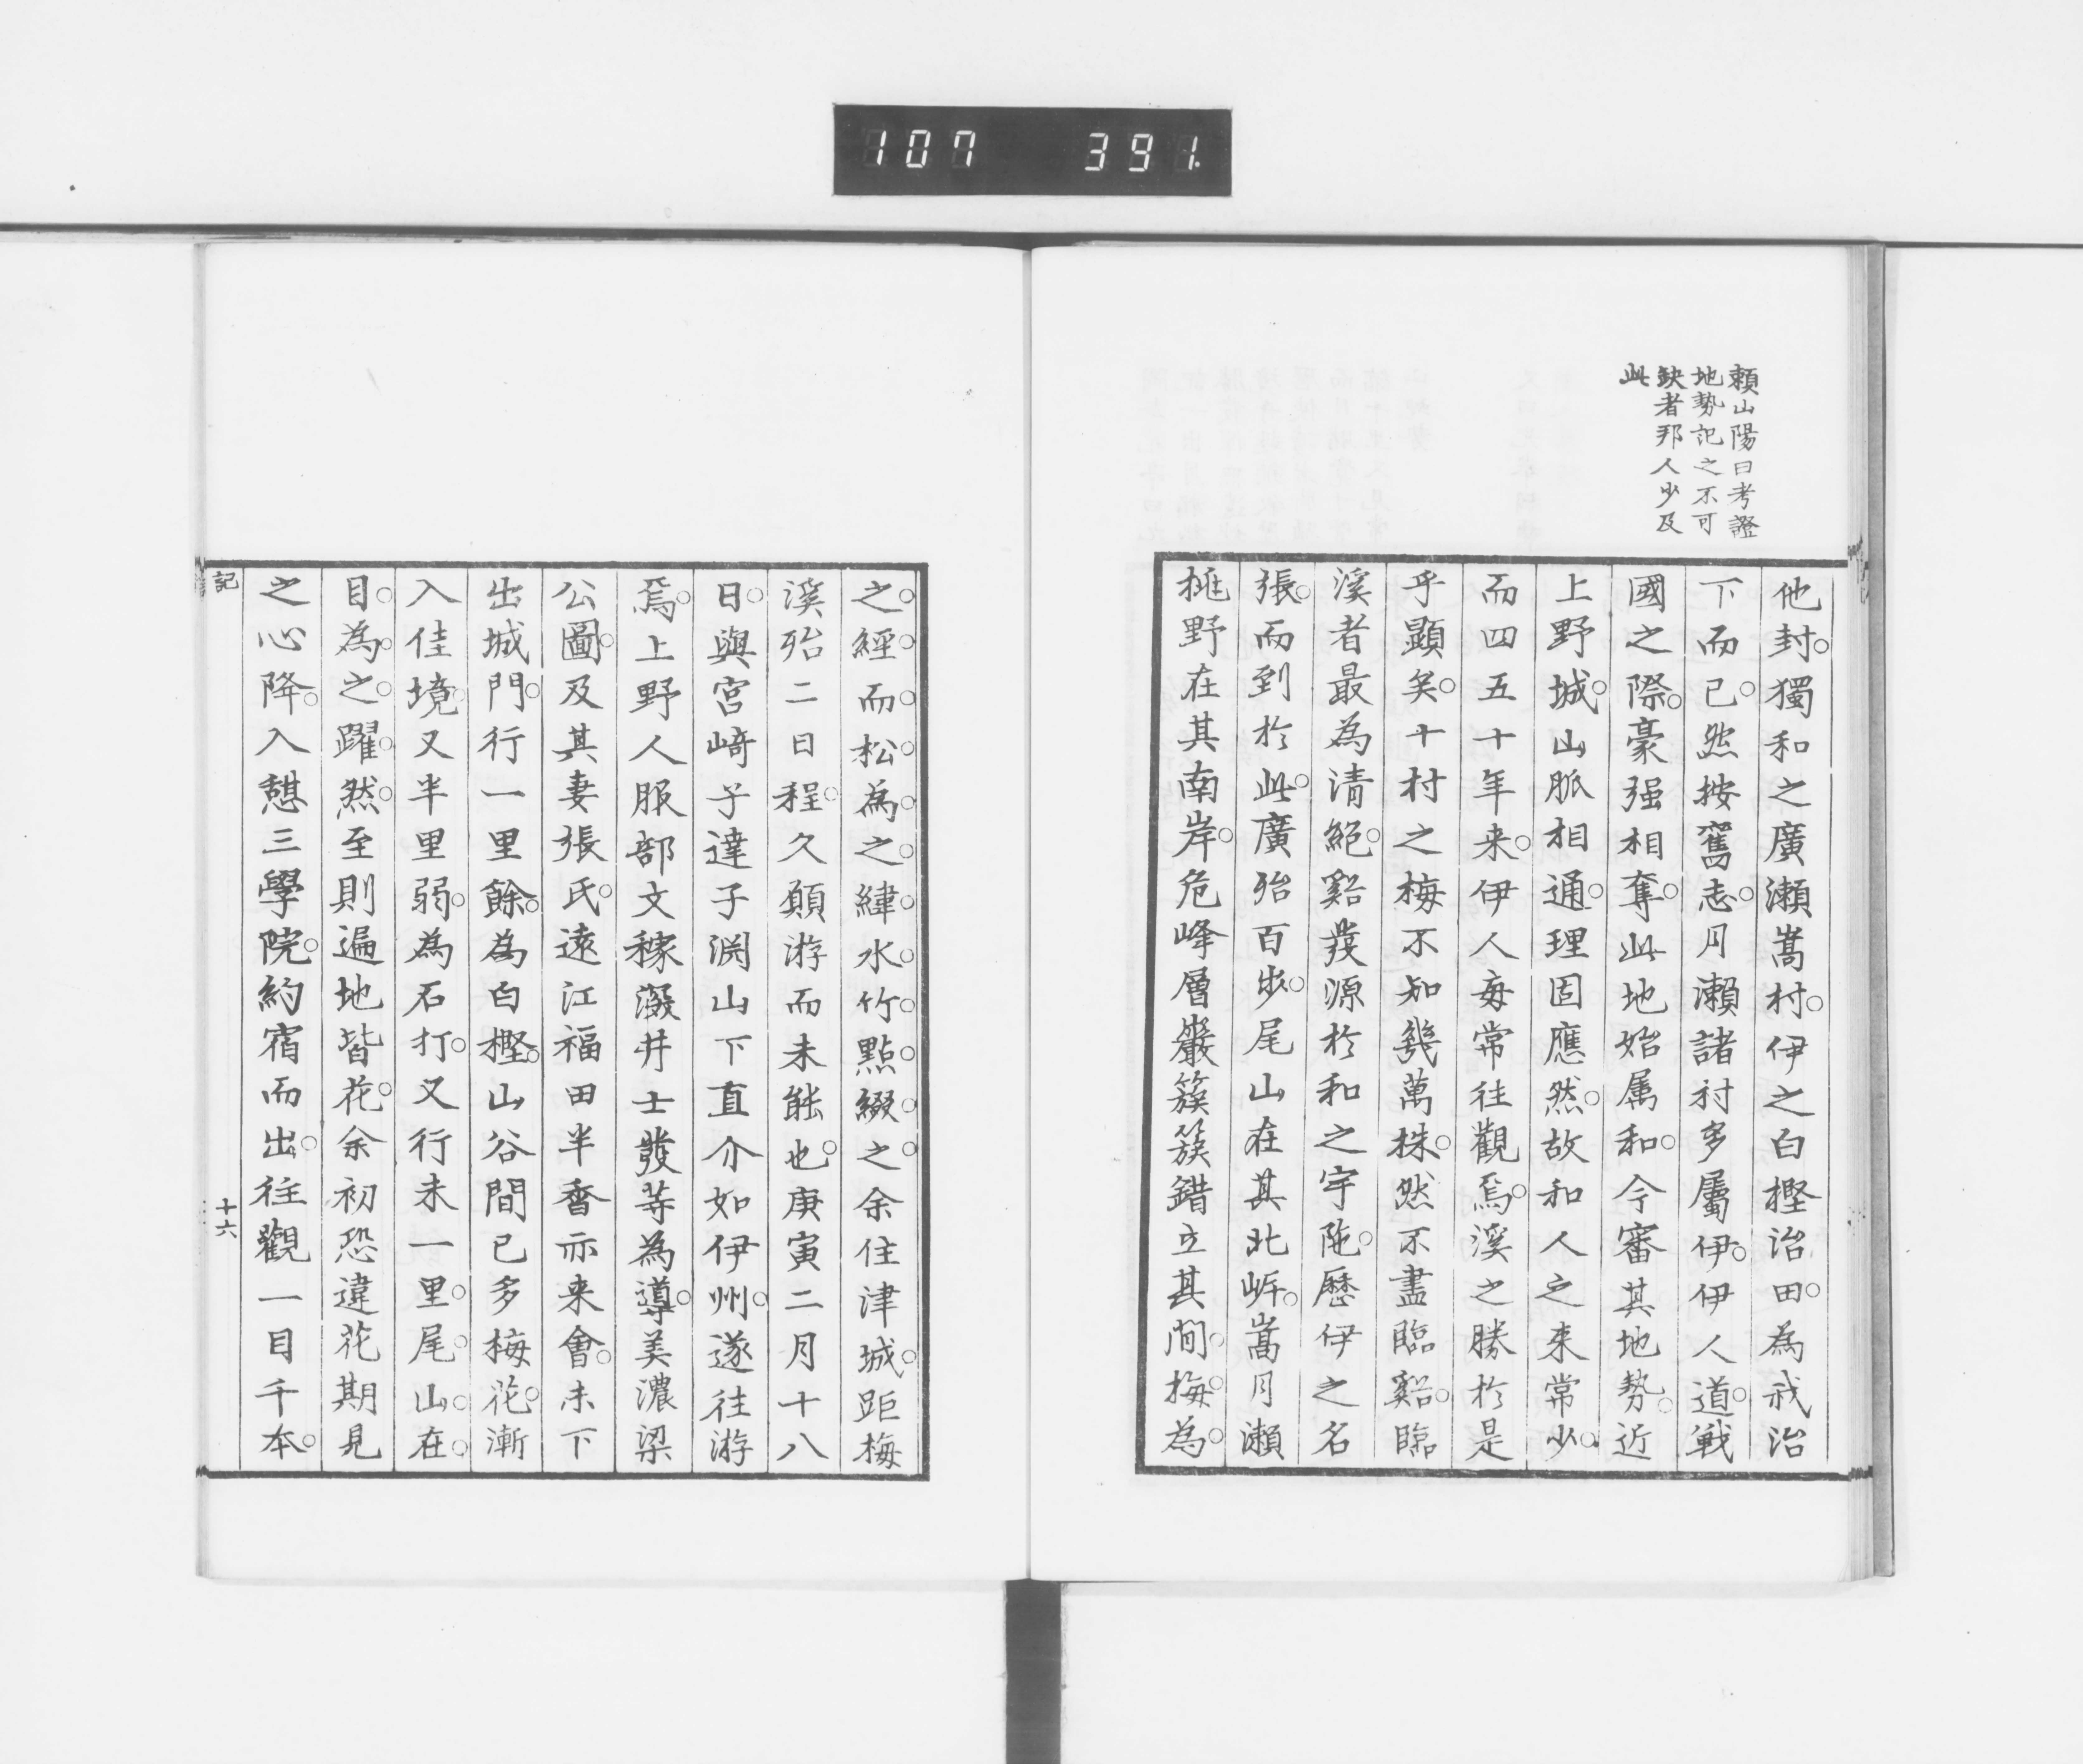 107 391.
賴山陽曰考證
地勢記之不可
缺者邦人少及
此
他封獨和之廣瀨嵩村伊之白樫治田為我治
下而已然按舊志月瀨諸村多屬伊伊人道戰
國之際豪强相奪此地始属和今審其地勢近
上野城山脈相通理固應然故和人之来常少
而四五十年来伊人每常往觀焉溪之勝於是
乎顯矣十村之梅不知幾萬株然不盡臨谿臨
溪者最為清絕谿發源於和之宇陁歷伊之名
張而到於此廣殆百步尾山在其北岸嵩月瀨
桃野在其南岸危峰層巖簇簇錯立其間梅為
之經而松為之緯水竹點綴之余住津城距梅
溪殆二日程久願游而未能也庚寅二月十八
日與宮崎子達子淵山下直介如伊州遂往游
焉上野人服部文稼深井士發等為導美濃梁
公圖及其妻張氏遠江福田半香亦来會未下
出城門行一里餘為白樫山谷間已多梅花漸
入佳境又半里弱為石打又行未一里尾山在
目為之躍然至則遍地皆花余初恐違花期見
之心降入憇三學院約宿而出往觀一目千本
記
十六